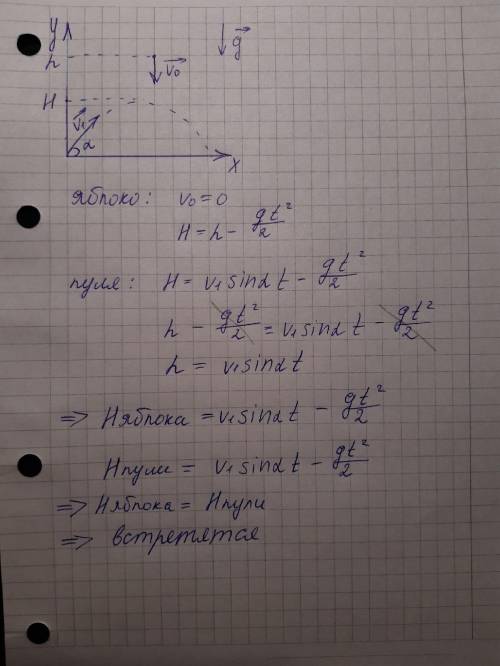 y
h
g⃗
v⃗₀
H
v⃗₁
α
x
яблоко: v₀ = 0
H = h - gt²/2
пуля: H = v₁sinαt - gt²/2
h - gt²/2 = v₁sinαt - gt²/2
h = v₁sinαt
=> Hяблока = v₁sinαt - gt²/2
Hпули = v₁sinαt - gt²/2
=> Hяблока = Hпули
=> встретятся